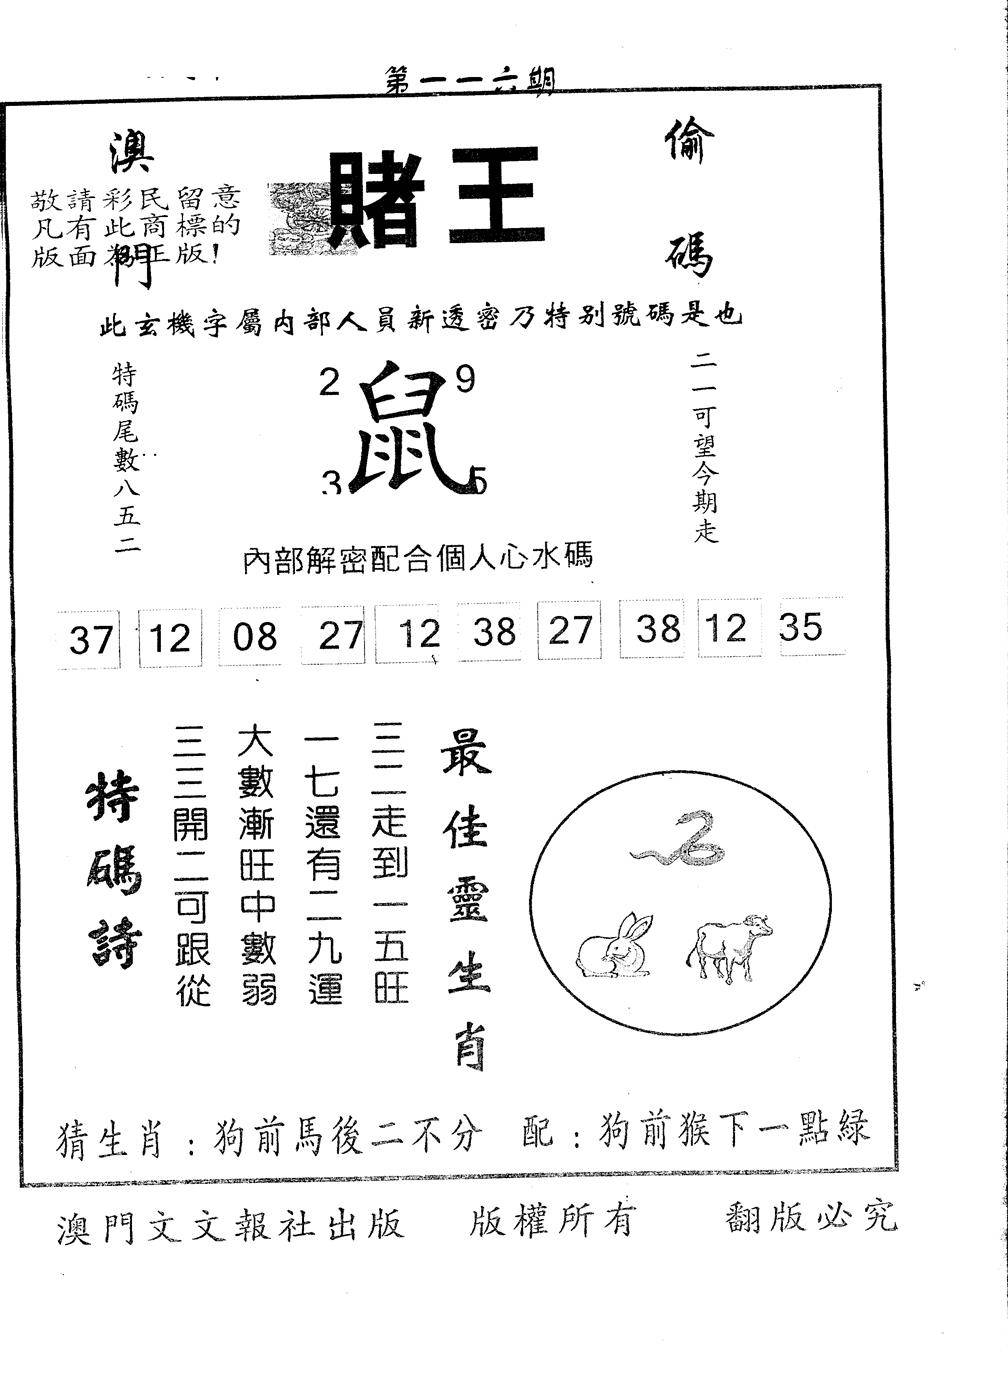 第一一六期
澳門
賭王
偷碼
敬請彩民留意
凡有此商標的
版面為正版!
此玄機字屬內部人員新透密乃特別號碼是也
特碼尾數八五二
2 9
鼠
3 5
二一可望今期走
內部解密配合個人心水碼
37 12 08 27 12 38 27 38 12 35
最佳靈生肖
三二走到一五旺
一七還有二九運
大數漸旺中數弱
三三開二可跟從
特碼詩
猜生肖:狗前馬後二不分 配:狗前猴下一點綠
澳門文文報社出版 版權所有 翻版必究